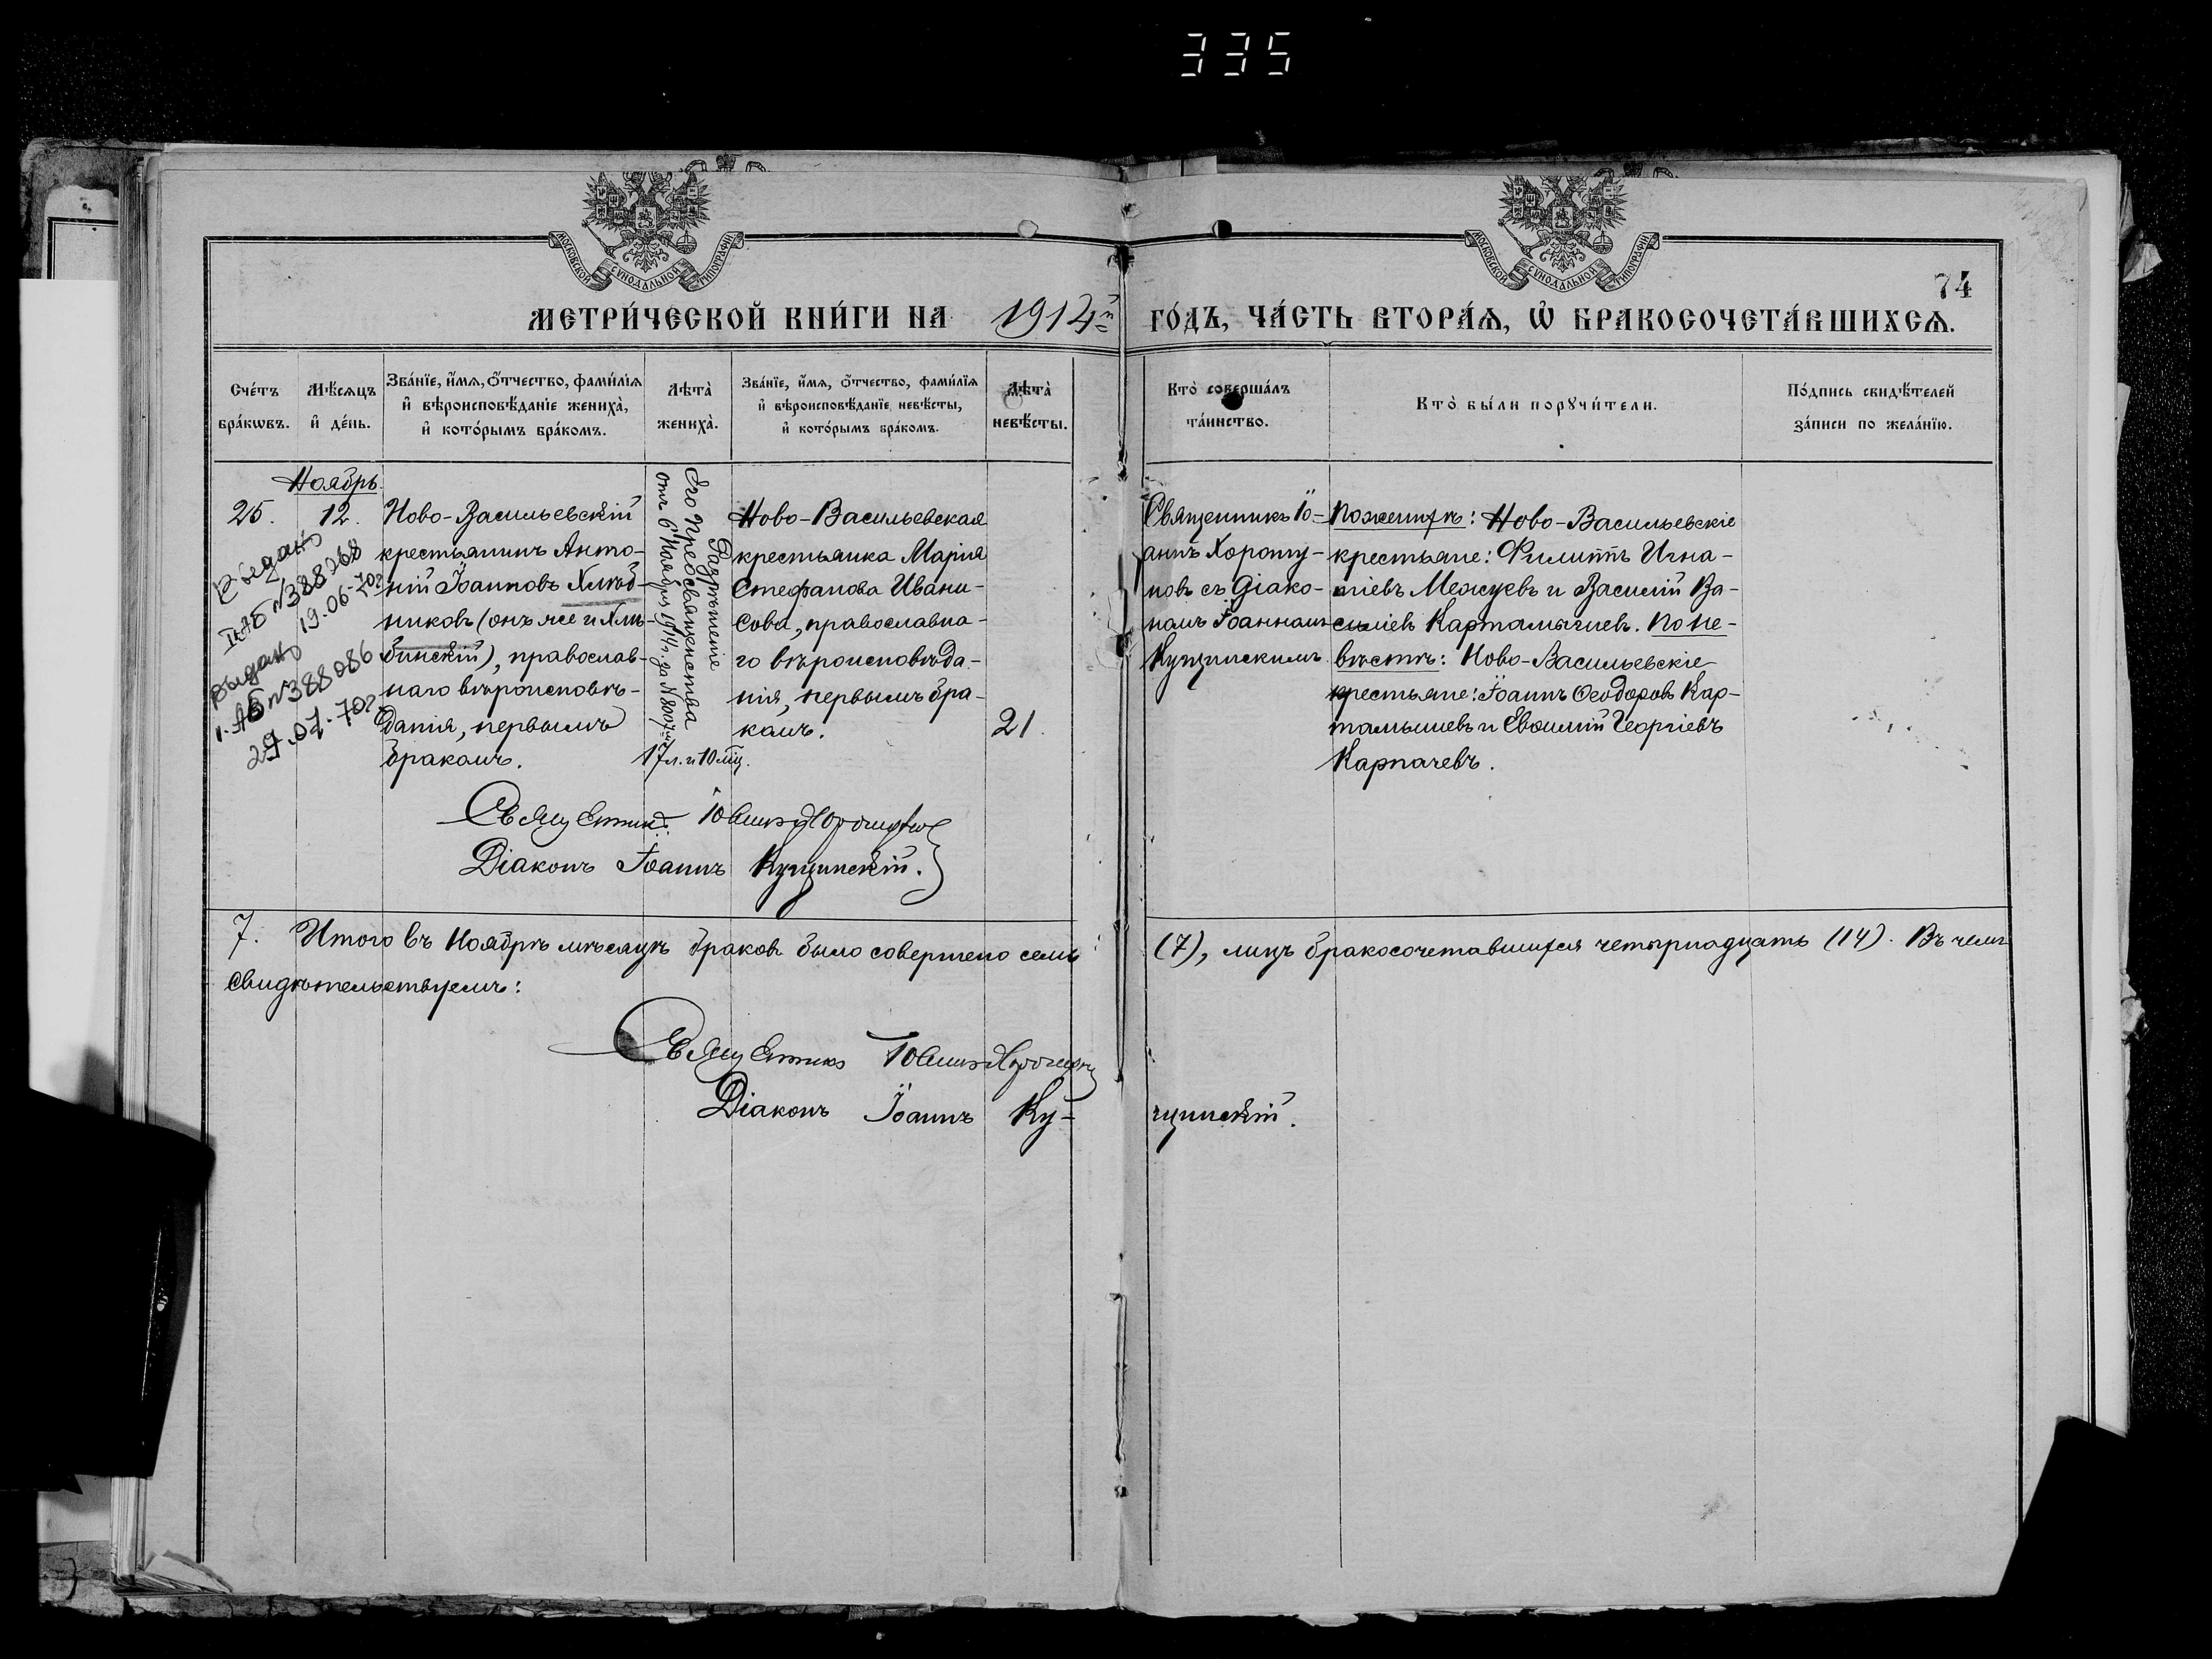 335
МОСКОВСКОЙ СѴНОДАЛЬНОЙ ТИПОГРАФІИ
МОСКОВСКОЙ СѴНОДАЛЬНОЙ ТИПОГРАФІИ
74
МЕТРИ́ЧЕСКОЙ КНИ́ГИ НА 1914й ГО́ДЪ, ЧА́СТЬ ВТОРА́Ѧ, Ѡ҆ БРАКОСОЧЕТА́ВШИХСѦ.
Сче́тъ
бра́кѡвъ.
Мѣ́сѧцъ
и҆ де́нь.
Зва́нїе, и҆́мѧ, ѻ҆́тчество, фами́лїѧ
и҆ вѣроисповѣ́данїе жениха̀,
и҆ кото́рымъ бра́комъ.
Лѣта̀
жениха̀.
Зва́нїе, и҆́мѧ, ѻ҆́тчество, фами́лїѧ
и҆ вѣроисповѣ́данїе невѣ́сты,
и҆ кото́рымъ бра́комъ.
Лѣта̀
невѣ́сты.
Кто̀ соверша́лъ
та́инство.
Кто̀ бы́ли порꙋчи́тели.
По́дпись свидѣ́телей
за́писи по жела́нїю.
Ноябрь
25.
12.
Ново-Васильевскій
крестьянинъ Анто-
ній Іоанновъ Хлѣб-
никовъ (онъ же и Хлѣ-
бинскій), православ-
наго вѣроисповѣ-
данія, первымъ
бракомъ.
Разрѣшеніе
Его Преосвященства
отъ 6 Ноября 1914 г. за № 8007
17 л. и 10 мц.
Ново-Васильевская
крестьянка Марія
Стефанова Ивани-
сова, православна-
го вѣроисповѣда-
нія, первымъ бра-
комъ.
21
Священникъ Іо-
аннъ Хорошу-
новъ съ діако-
номъ Іоанномъ
Кущинскимъ
По женихѣ: Ново-Васильевскіе
крестьяне: Филиппъ Игна-
тіевъ Межуевъ и Василій Ва-
силіевъ Картамышевъ. По не-
вѣстѣ: Ново-Васильевскіе
крестьяне: Іоаннъ Ѳеодоровъ Кар-
тамышевъ и Евѳимій Георгіевъ
Карпачевъ.
выдано
II АБ №388268
19.06-70г
выдано
I-АБ №388086
29.07-70г.
Священникъ Іоаннъ
Діаконъ Іоаннъ Кущинскій.
7. Итого въ Ноябрѣ мѣсяцѣ браковъ было совершено семь (7), лицъ бракосочетавшихся четырнадцать (14). Въ чемъ
свидѣтельствуемъ:
Священникъ Іоаннъ
Діаконъ Іоаннъ Ку-
щинскій.